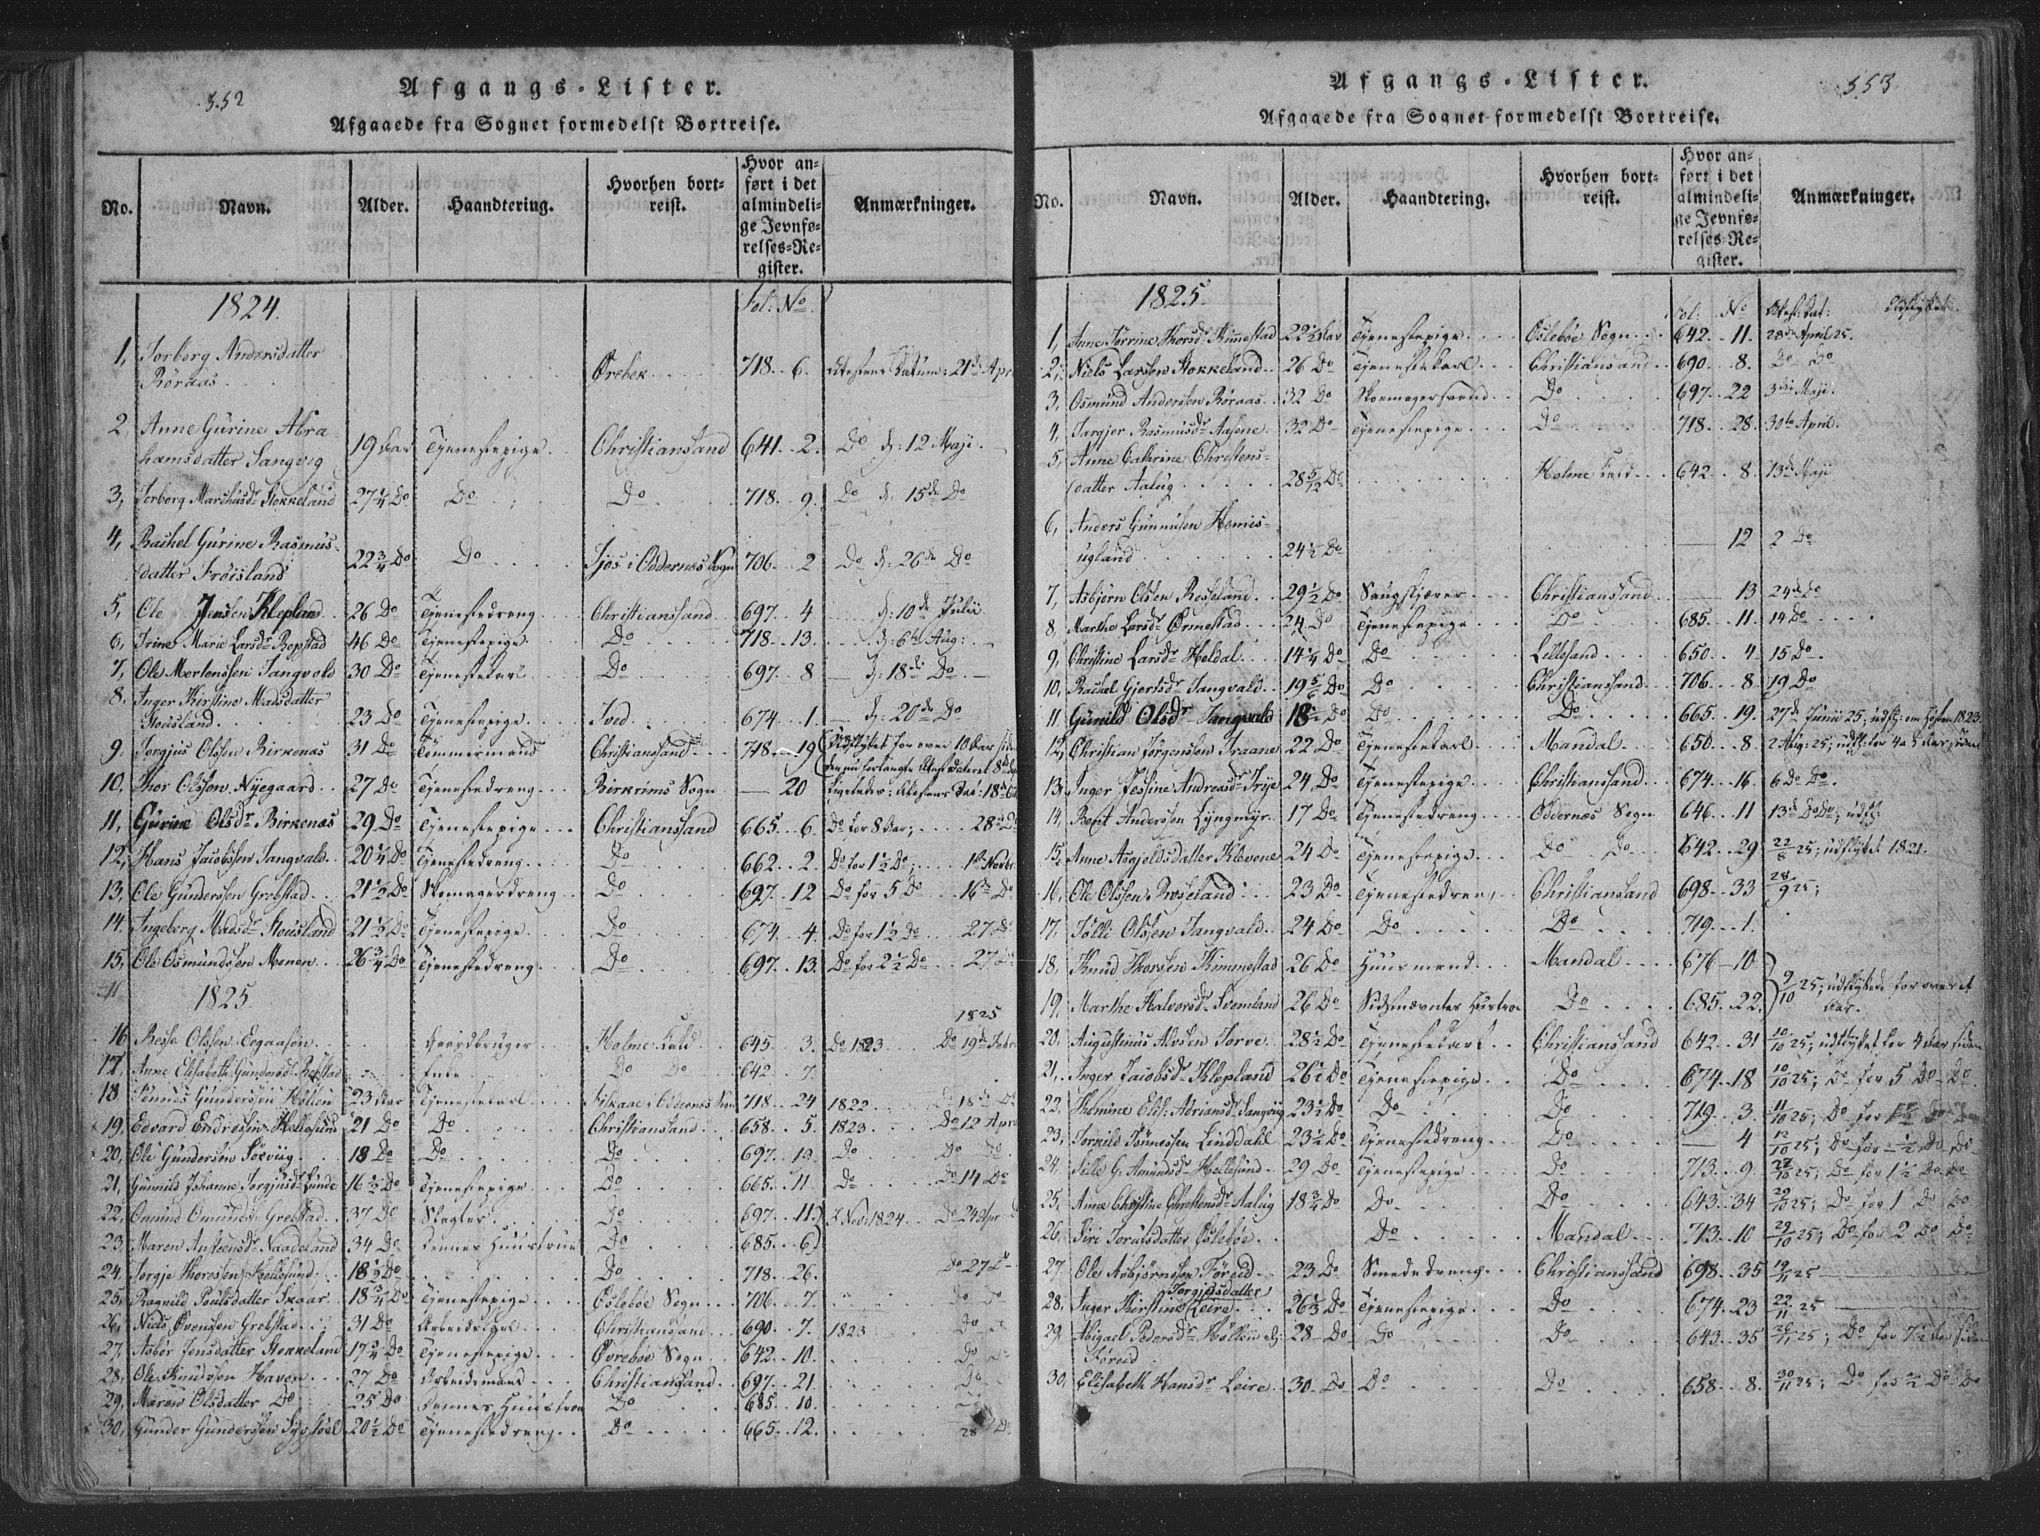 552
Afgangs-Lister.
Afgaaede fra Sognet formedelst Bortreise.
No. Navn. Alder. Haandtering. Hvorhen bortreist. Hvor anført i det almindelige Jevnførelses-Register. Anmærkninger.
1824. Fol: No
1, Torborg Andersdatter
Røraas Ørebek 718 6. Attestens Datum: 21de Apr
2, Anne Gurine Abra
hamsdatter Langvig 19 Aar Tjenestepige Christiansand 641 2. Do d: 12 Maji
3, Torborg Marchusdr Stokkeland 27 1/4 Do Do Do 718 9. Do d: 15de Do
4, Rachel Gurine Rasmus
datter Frøisland 22 3/4 Do Do i Oddernes Sogn 706 2 Do d: 26de Do
5, Ole Jensen Klepland 26 Do Tjenestedreng Christiansand 697 4 d: 10de Julii
6, Trine Marie Larsdr Repstad 46 Do Tjenestepige Do 718 13. d: 6te Aug:
7, Ole Mortenssen Langvold 30 Do Tjenestekarl Do 697 8 d: 18de Do
8. Inger Kirstine Madsdatter
Stousland 23 Do Tjenestepige Tved 674 1. d: 20de Do
9. Torgjus Olssen Birkenes 31 Do Tømmermand Christiansand 718 19 Udflyttet for over 10 Aar siden
10. Thor Olssen Nyegaard 27 Do Tjenestedreng Birkrims Sogn — 20
11, Gurine Olsdr Birkenes 29 Do Tjenestepige Christiansand 665 6. Do for 8 Aar; 28 Do
12, Hans Jacobssen Langvald 20 1/4 Do Tjenestedreng Do 662 2. Do for 1 1/2 Do; 1ste Novbr
13, Ole Gunderssen Grebstad 21 1/2 Do Skomagerdreng Do 697 12 Do for 5 Do 16de Do
14. Ingeberg Madsdr Stousland 21 1/2 Do Tjenestepige Do 674 4. Do for 1 1/2 Do 27 Do
15, Ole Osmundsen Monen 26 3/4 Do Tjenestedreng Do 697 13. Do for 2 1/2 Do 27
1825 1825
16 Besse Olssen Eegaasen Gaardbruger Holme Field 645 3. Do 1823 Do 19de Febr
17, Anne Elisabeth Gundersdr Repstad Enke Do Do 642 7.
18 Tønnes Gunderssen Hollen 23 Aar Tjenestekarl i Oddernes Sogn 718 24 1822 18 Do
19, Edvard Endresen Hellesund 21 Do Do Christiansand 658 5. 1823 Do 12 Apr
20, Ole Gundersen Solvig 18 Do Do Do 697 19 Do Do Do
21, Gunnild Johanne Torgjusdr Lunde 16 1/2 Do Tjenestepige Do 665 11 Do Do 14 Do
22, Omund Omunds: Grebstad 37 Do Slagter Do 697 11 Nov: 1824 Do 24 Apr
23, Maren Anstensdr Naadeland 34 Do Dennes Huustrue Do 685 6
24, Torgje Thorssen Hellesund 18 1/2 Do Do 718 26. Do 27 Do
25, Ragnild Poulsdatter Skaar 18 3/4 Do Tjenestepige Øslebøe Sogn 706 7. Do Do
26, Niels Ovenssen Grebstad 31 Do Arbeidskarl Christiansand 690 7. 1823 Do
27, Asbor Jensdatter Stokkeland 17 3/4 Do Tjenestepige Øvrebøe Sogn 642 10. Do
28, Ole Knudssen Haven 27 Do Arbeidsmand Christiansand 697 21. Do
29, Maren Olsdatter Do 25 Do Dennes Huustrue Do 685 10.
30, Gunder Gunderssen 20 1/2 Do Tjenestedreng Do 665 12. 28 Do
553
Afgangs-Lister.
Afgaaede fra Sognet formedelst Bortreise.
No. Navn. Alder. Haandtering. Hvorhen bortreist. Hvor anført i det almindelige Jevnførelses-Register. Anmærkninger.
1825. Fol: No Attest: Dat: Udflyttet
1, Anne Torrine Thorsdr Kimestad 22 1/2 Aar Tjenestepige Øslebøe Sogn 642 11. 28de April 25.
2, Niels Larsen Stokkeland 26 Do Tjenestekarl Christiansand 690 8. Do Do
3, Osmund Andersen Røraas 32 Do Skomagersvend Do 697 22 3die Maji
4, Targjer Rasmusdr Aasene 32 Do Tjenestepige Do 718 28. 30te April
5, Anne Cathrine Christens-
datter Aalug 28 5/12 Do Holme Field 642 8. 13de Maji
6, Anders Gunnufsen Homis-
ugland 24 1/2 Do — 12 2 Do
7, Asbjørn Olsen Resseland 29 1/2 Do Saugskjærer Christiansand — 13 24de Do
8, Marthe Larsdr Ørmestad 24 Do Tjenestepige Do 685 11. 14 Do
9, Christine Larsdr Heldal 14 1/4 Do Do Lillesand 650 4. 15 Do
10, Rachel Gjertsdr Langvald 19 5/6 Do Do Christiansand 706 8 19 Do
11 Gunild Olsdr Langvald 18 1/2 Do Do Do 665 19. 27de Junii 25; udfl: om Høsten 1823
12, Christian Jørgenssen Traane 22 Do Tjenestekarl Mandal 650 8. 2 Aug: 25; udfl: for 4 a 5 Aar siden
13, Inger Jessine Andreasdr Trye 24 Do Tjenestepige Christiansand 674 16 6 Do Do
14, Bent Andersen Lyngmyr 17 Do Tjenestedreng Oddernes Sogn 646 11 13de Do Do; udfl:
15, Anne Asgjeldsdatter Klevene 24 Do Tjenestepige Do Do 642 29 22/8 25; udflyttet 1821
16, Ole Olssen Roseland 23 Do Tjenestedreng Christiansand 698 33 28/9 25;
17. Tolli Olssen Langvald 24 Do Do Do 719 1.
18, Knud Thorsen Kimmestad 26 Do Huusmand Mandal 676 10
19, Marthe Halvorsdr Svemland 26 Do Sidstnævntes Hustrue Do 685 22. 9/10 25; udflyttede for over et Aar.
20, Augustinus Alvsen Torve 28 1/2 Do Tjenestekarl Christiansand 642 31 10/10 25; udflyttet for 4 Aar siden
21, Inger Jacobsdr Klepland 26 1/2 Do Tjenestepige Do 674 18 10/10 25; Do for 5 Do Do
22, Thomine Elis: Adriansdr Langvig 23 1/2 Do Do Do 719 3. 11/10 25; Do for 1 1/2 Do Do
23, Torkild Tønnessen Linddahl 23 1/2 Do Tjenestedreng Do — 4 12/10 25; Do for 1/2 Do Do
24. Sille G. Amundsdr Hellesund 29 Do Tjenestepige Do 713 9. 22/10 25; Do for 1 1/2 Do Do
25. Anne Christine Christensdr Aalug 18 3/4 Do Do Do 643 34 29/10 25; Do for 1 Do Do
26. Siri Terulsdatter Øslebøe Do Mandal 713 10 29/10 25; Do for 2 Do Do
27. Ole Asbjørnssen Føreid 23 Do Smededreng Christiansand 698 35 19/11 25
28. Inger Kirstine Torgjusdatter Leire 26 1/3 Do Tjenestepige Do 674 23 22/11 25
29. Abigael Pedersdr Hollen
Føreid 28 Do Do Do 643 35 26/11 25; Do for 7 1/2 Aar siden
30, Elisabeth Hansdr Leire 30 Do Do Do 658 8. 30/11 25; Do for 1/2 Do Do